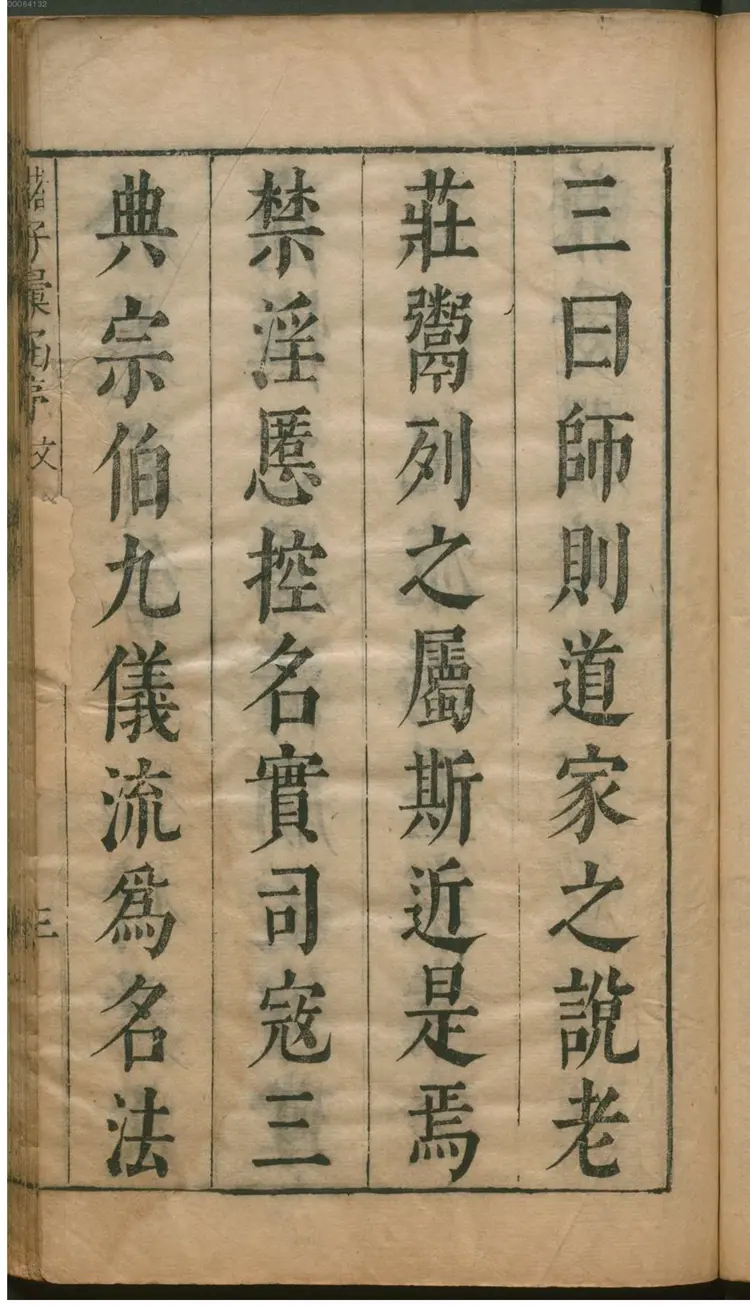 三曰師則道家之說老
莊鬻列之屬斯近是焉
禁淫慝控名實司寇三
典宗伯九儀流爲名法
諸子彙函序 文
三
00064132